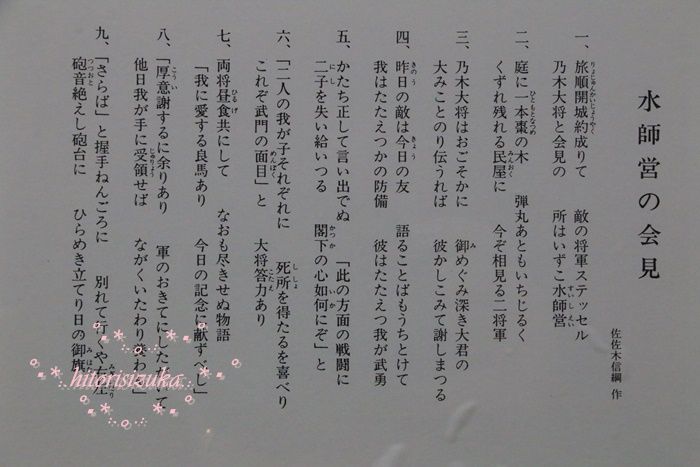 水師営の会見
佐佐木信綱 作
一、旅順開城約成りて 敵の将軍ステッセル
乃木大将と会見の 所はいずこ水師営
二、庭に一本棗の木 弾丸あともいちじるく
くずれ残れる民屋に 今ぞ相見る二将軍
三、乃木大将はおごそかに 御めぐみ深き大君の
大みことのり伝うれば 彼かしこみて謝しまつる
四、昨日の敵は今日の友 語ることばもうちとけて
我はたたえつかの防備 彼はたたえつ我が武勇
五、かたち正して言い出でぬ 「此の方面の戦闘に
二子を失い給いつる 閣下の心如何にぞ」と
六、「二人の我が子それぞれに 死所を得たるを喜べり
これぞ武門の面目」と 大将答力あり
七、両将昼食共にして なおも尽きせぬ物語
「我に愛する良馬あり 今日の記念に献ずべし」
八、「厚意謝するに余りあり 軍のおきてにしたがいて
他日我が手に受領せば ながくいたわり養わん」
九、「さらば」と握手ねんごろに 別れて行くや右左
砲音絶えし砲台に ひらめき立てり日の御旗
hitorisizuka